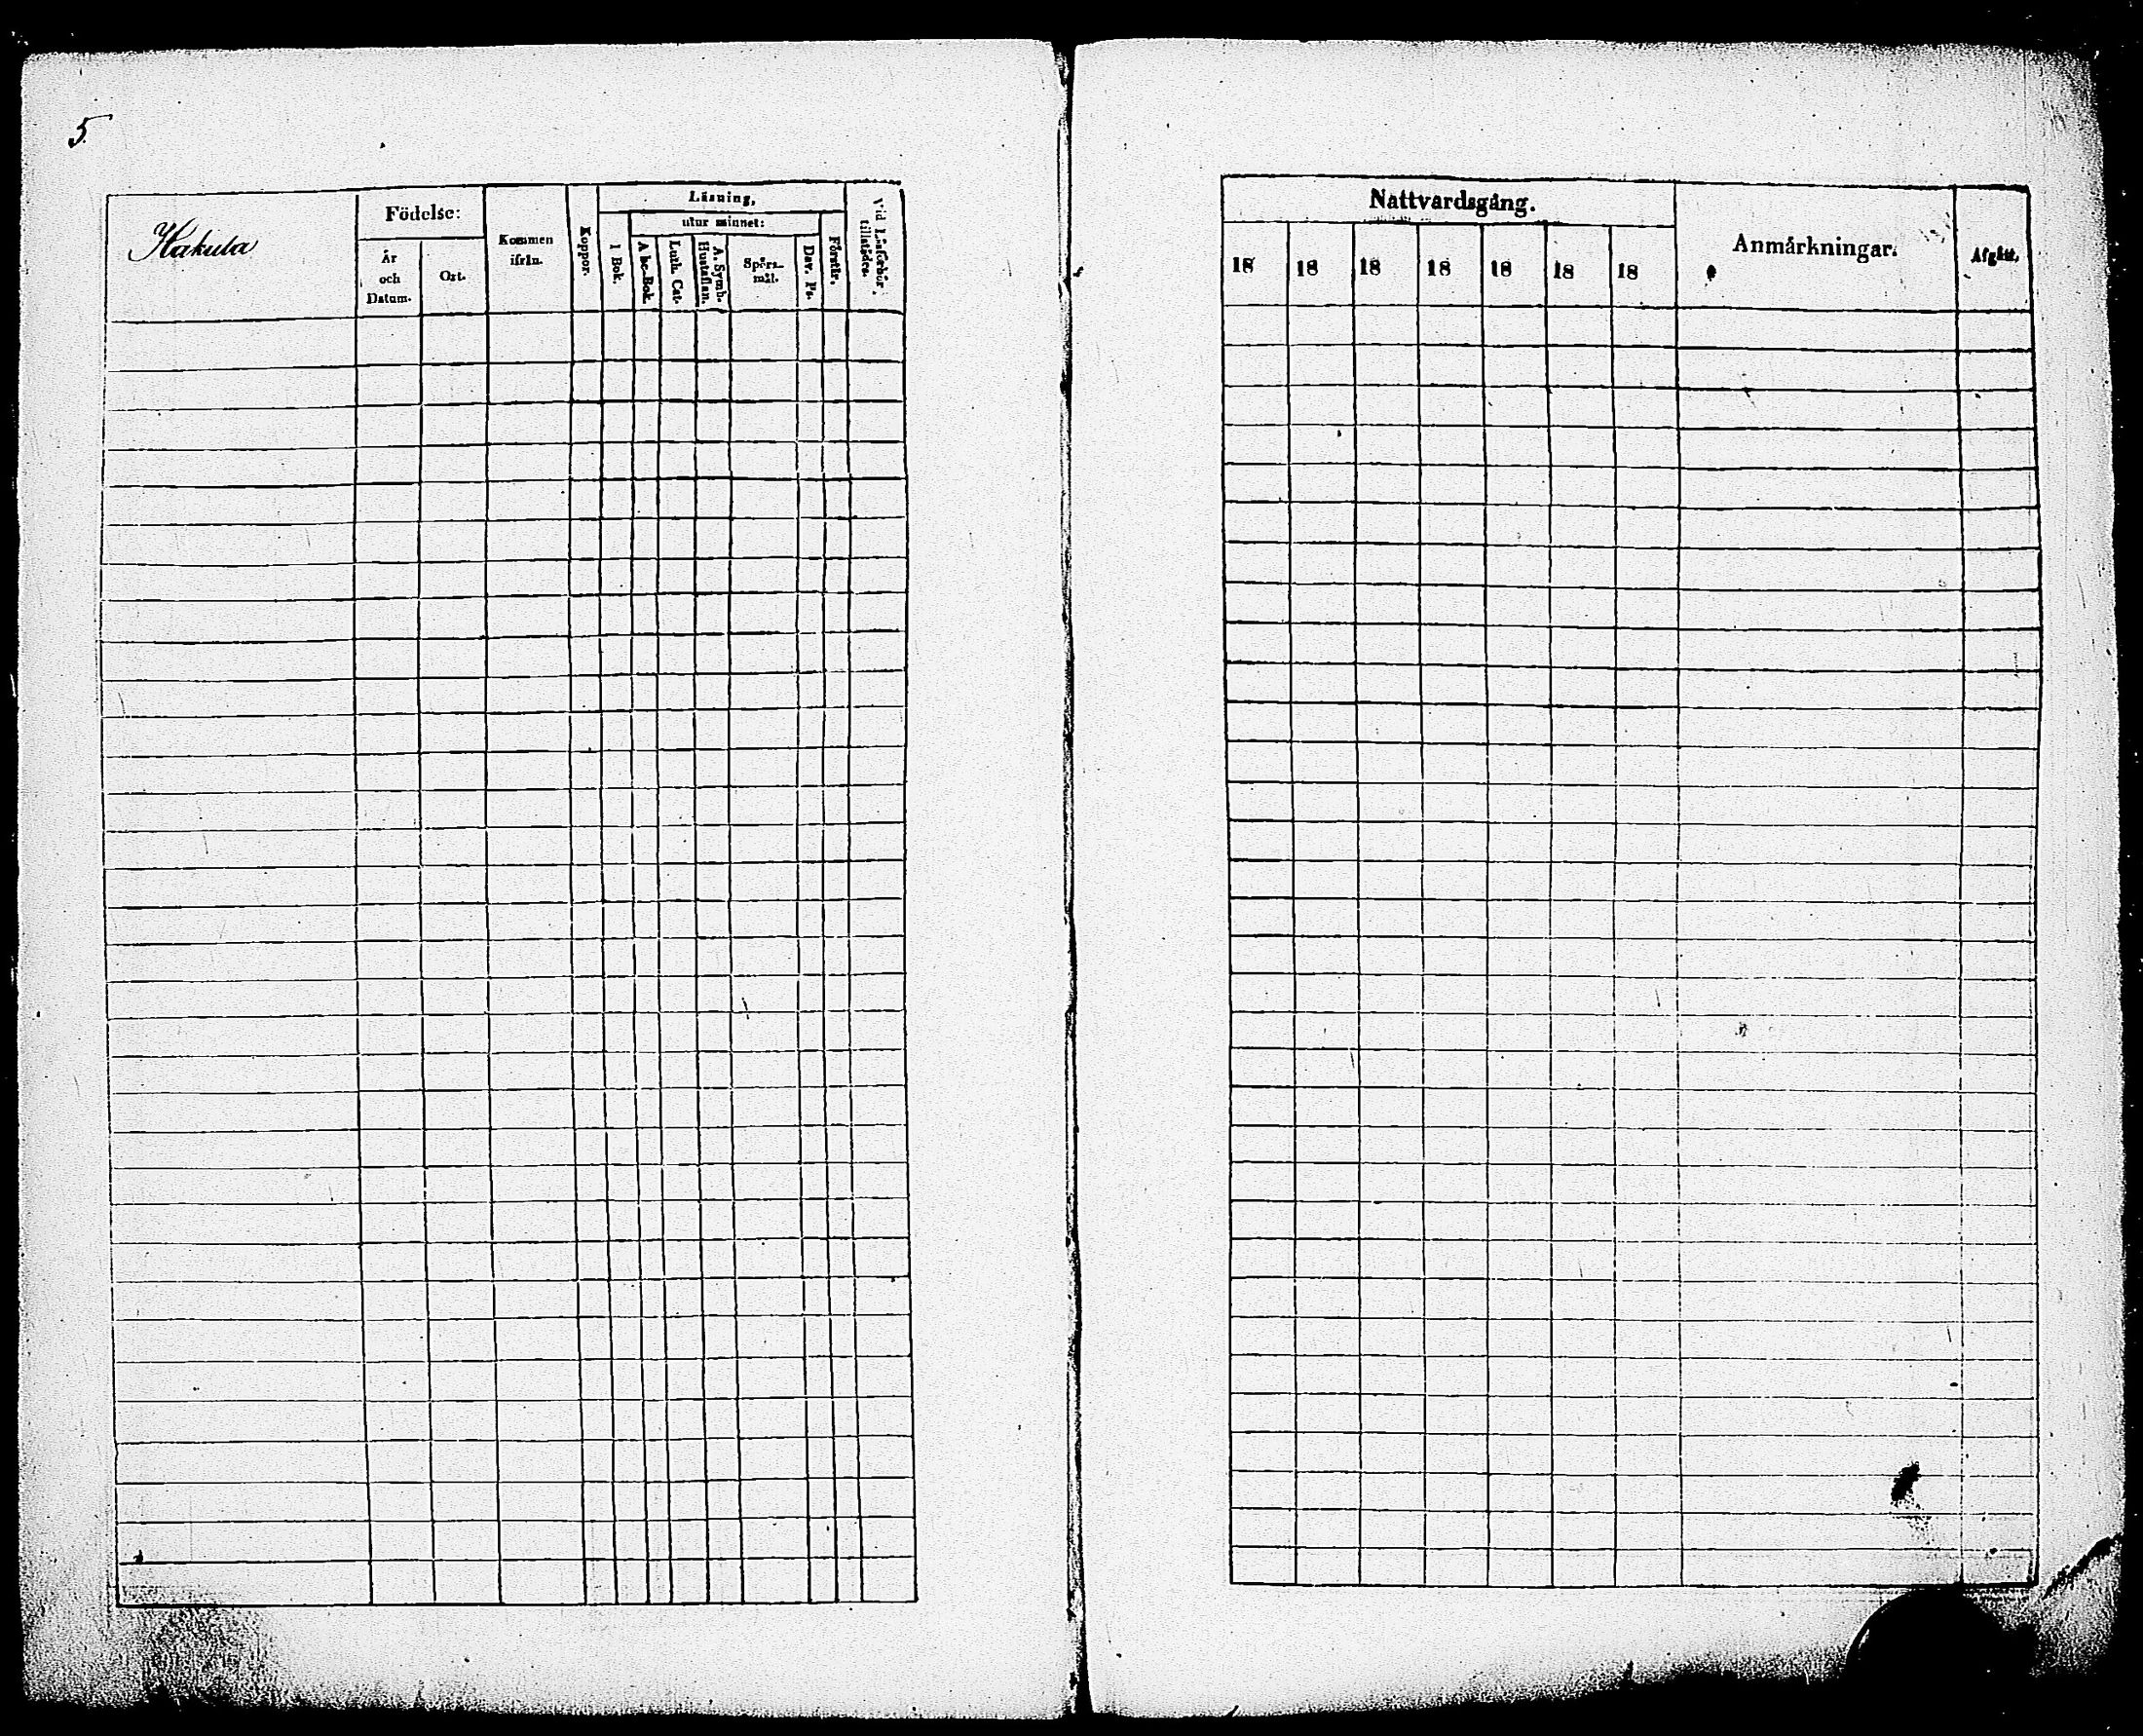 5.
Hakula
Födelse:
År
och
Datum.
Ort.
Kommen
ifrån.
Koppor.
Läsning,
utur minnet:
I Bok.
Abc-Bok.
Luth. Cat.
A. Symb.
Hustaflan.
Spörs-
mål.
Dav. Ps.
Förstår.
Vid Läsförhör
tillstädes.
Nattvardsgång.
18 18 18 18 18 18 18
Anmärkningar.
Afgått.